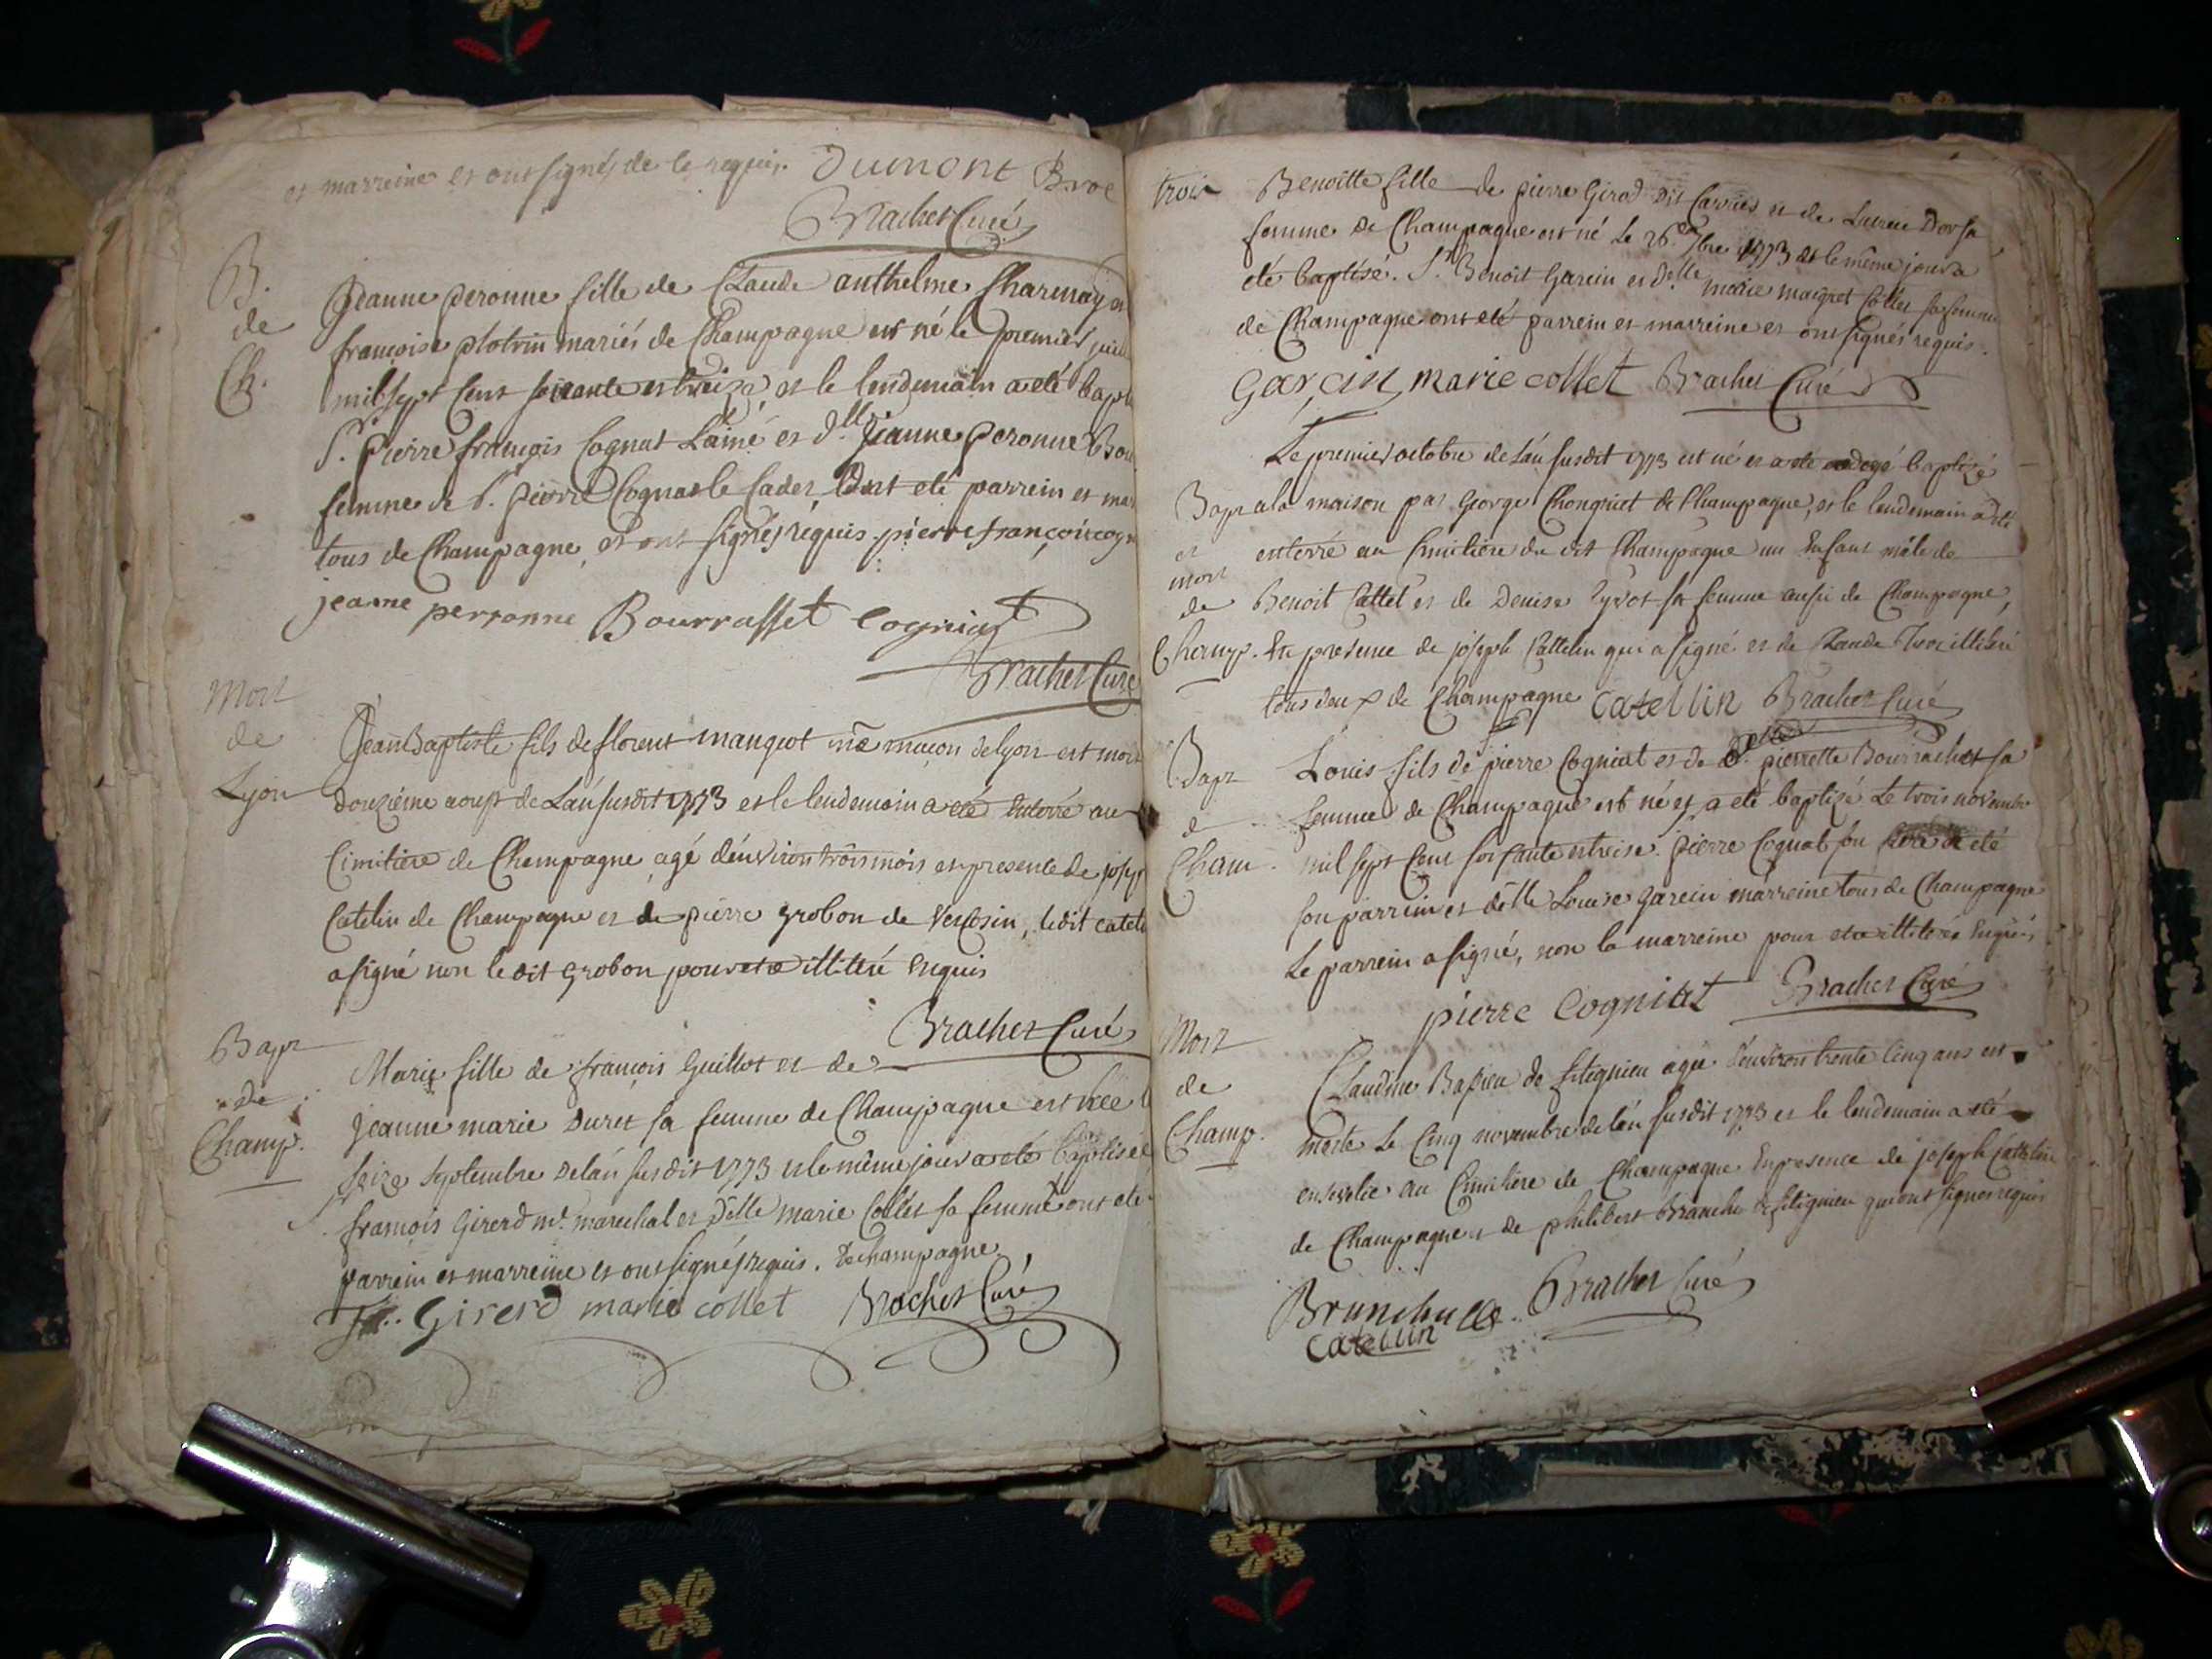 et marreine et ont signés de ce requis. Dumont
Brachet Curé
B.
de
Ch.
Jeanne peronne fille de Claude anthelme Charmay
francoise plotrin mariés de Champagne est né le premier
mil sept cent soixante et treize, et le lendemain a eté
Sr. Pierre françois Cognat L'ainé et dlle Jeanne peronne
femme de S. pierre Cognat le Cadet ont eté parrein et
tous de Champagne, et ont signés requis. pierre françois
jeanne perronne Bourrasset Cogniat
Brachet Curé
Mort
de
Lyon
Jean Baptiste fils de florent mangeot me maçon de lyon est mort
douziéme aoust de L'an susdit 1773 et le lendemain a eté enterré au
Cimitiere de Champagne, agé d'environ trois mois en presence de
Catelin de Champagne et de pierre grobon de , ledit
a signé non le dit grobon pour etre illiteré enquis
Brachet Curé
Bapt
de
Champ.
Marie fille de françois Guillot et de
Jeanne marie Duret sa femme de Champagne est née
seize septembre de l'an susdit 1773 et le même jour a eté baptisée
françois Girerd mt. marechal et Delle marie Collet sa femme ont eté
parrein et marreine et ont signés requis. de champagne
Girerd marie collet Brachet Curé
trois
Benoitte fille de pierre Girod dit Carriés et de
femme de Champagne est né Le 26e 7bre 1773 et le même jour a
eté baptisé. Sr. Benoit Garcin et dlle marie Collet sa femme
de Champagne ont eté parrein et marreine et ont signés requis.
Garcin marie collet Brachet Curé
Le premier octobre de L'an susdit 1773 est né et a eté baptisé
Bapt a la maison par George de Champagne, et le lendemain a eté
et enterré au Cimitiere du dit Champagne un Enfant mâle de
mort
de Benoit Cattet et de Denise sa femme aussi de Champagne,
Champ. En presence de joseph Cattelin qui a signé et de Claude
tous deux de Champagne Catellin Brachet Curé
Bapt
de
Cham.
Louis fils de pierre Cogniat et de pierrette Bourrachet sa
femme de Champagne est né et a eté baptizé Le trois novembre
mil sept cent soixante et treise. pierre Cognat son a eté
son parrein et delle Louise Garcin marreine tous de Champagne
Le parrein a signé, non la marreine pour etre illiterée Enquis
pierre Cogniat Brachet Curé
Mort
de
Champ.
Claudine de agée d'environ trente cinq ans est
morte Le cinq novembre de l'an susdit 1773 et le lendemain a eté
ensevelie au Cimitiere de Champagne En presence de joseph Cattelin
de Champagne et de philibert de qui ont signés requis
Brachet Curé
Catellin